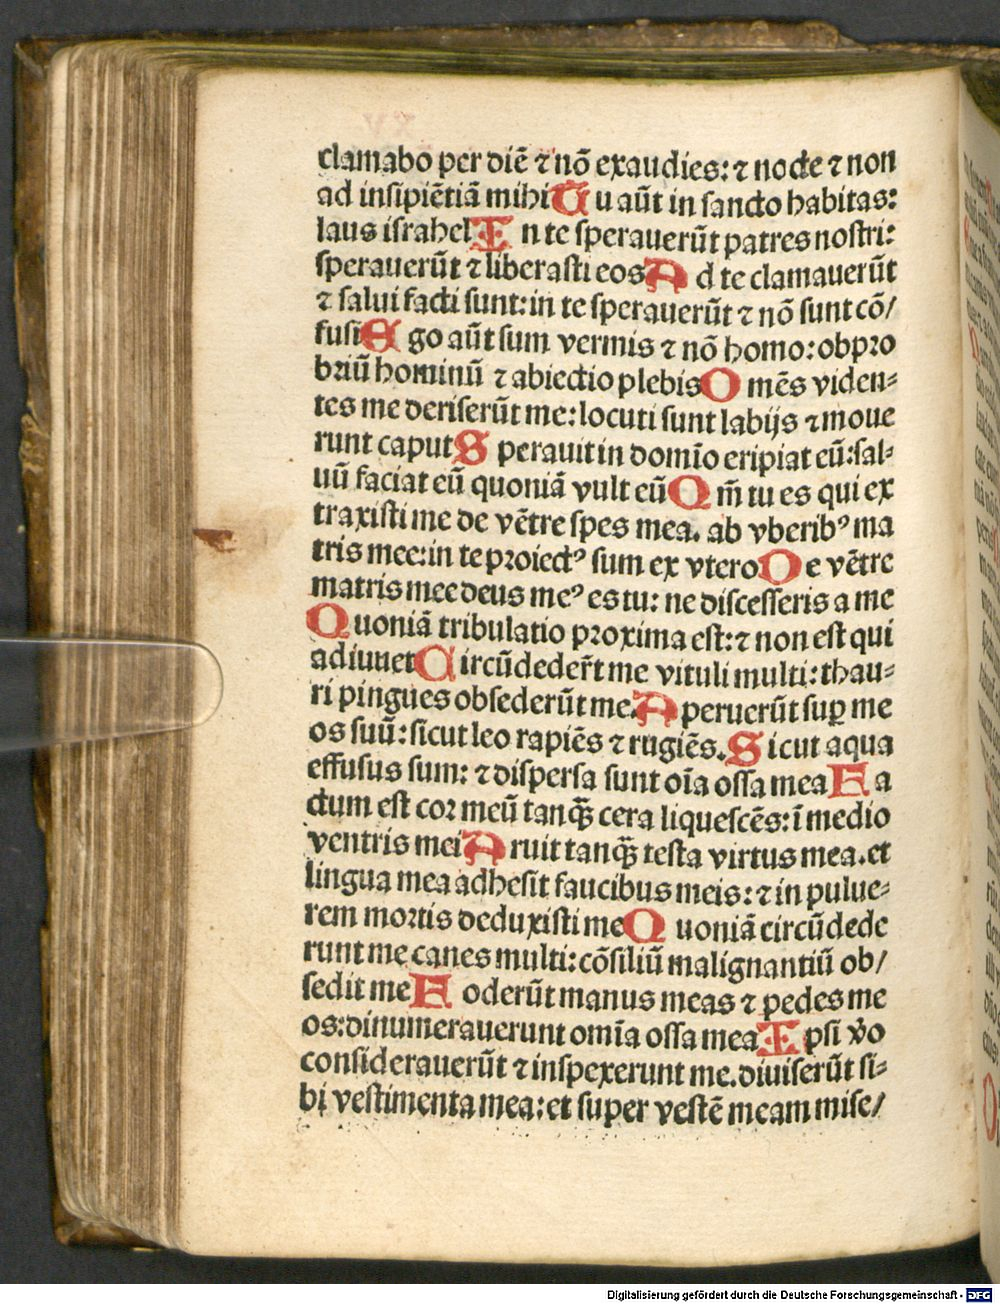 clamabo per diē ⁊ nō exaudies: ⁊ nocte ⁊ non
ad insipiētiā mihi Tu aūt in sancto habitas:
laus israhel In te sperauerūt patres nostri:
sperauerūt ⁊ liberasti eos Ad te clamauerūt
⁊ salui facti sunt: in te sperauerūt ⁊ nō sunt cō/
fusi Ego aūt sum vermis ⁊ nō homo: obpro
briū hominū ⁊ abiectio plebis Omēs viden⸗
tes me deriserūt me: locuti sunt labijs ⁊ moue
runt caput Sperauit in domīo eripiat eū: sal⸗
uū faciat eū quoniā vult eū Qm̄ tu es qui ex
traxisti me de vētre spes mea. ab vberibꝰ ma
tris mee: in te proiectꝰ sum ex vtero De vētre
matris mee deus meꝰ es tu: ne discesseris a me
Quoniā tribulatio proxima est: ⁊ non est qui
adiuuet Circūdeder̄t me vituli multi: thau⸗
ri pingues obsederūt me. Aperuerūt suꝑ me
os suū: sicut leo rapiēs ⁊ rugiēs. Sicut aqua
effusus sum: ⁊ dispersa sunt oīa ossa mea Fa
ctum est cor meū tanqꝫ̄ cera liquescēs: ī medio
ventris mei Aruit tanqꝫ̄ testa virtus mea. et
lingua mea adhesit faucibus meis: ⁊ in pulue⸗
rem mortis deduxisti me Quoniā circūdede
runt me canes multi: cōsiliū malignantiū ob/
sedit me Foderūt manus meas ⁊ pedes me
os: dinumerauerunt omīa ossa mea Ipsi v̄o
considerauerūt ⁊ inspexerunt me. diuiserūt si⸗
bi vestimenta mea: et super vestē meam mise/
Digitalisierung gefördert durch die Deutsche Forschungsgemeinschaft - DFG